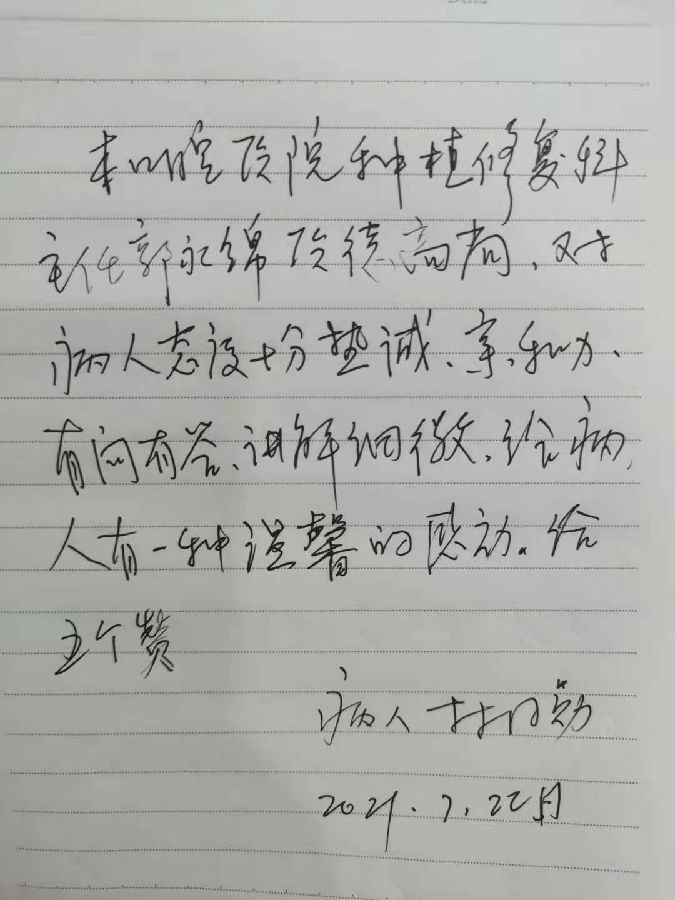 本口腔医院种植修复科
主任郭永锦医德高尚、对
病人态度十分挚诚、亲和力、
有问有答、讲解细微、给病
人有一种温馨的感动。给
五个赞
病人 林
2021.7.22月